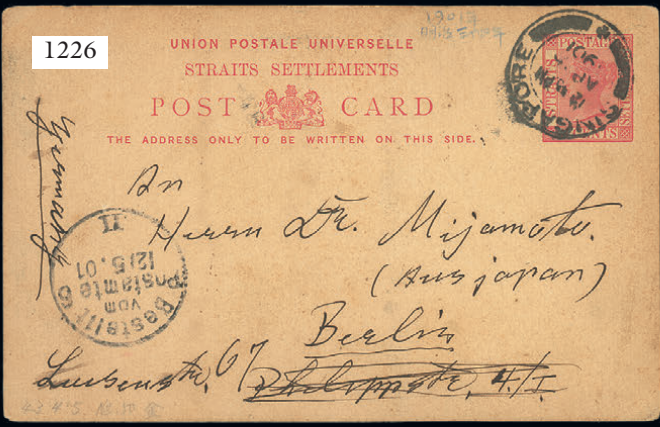 1226
UNION POSTALE UNIVERSELLE
STRAITS SETTLEMENTS
POST CARD
THE ADDRESS ONLY TO BE WRITTEN ON THIS SIDE.
SINGAPORE
AP
POSTAGE
STRAITS
Germany
An
Herrn Dr. Mijamoto.
(Aus Japan)
Berlin
Luisenstr. 67 Philippstr. 4/I
Bestellt
vom
Postamte
12/5.01